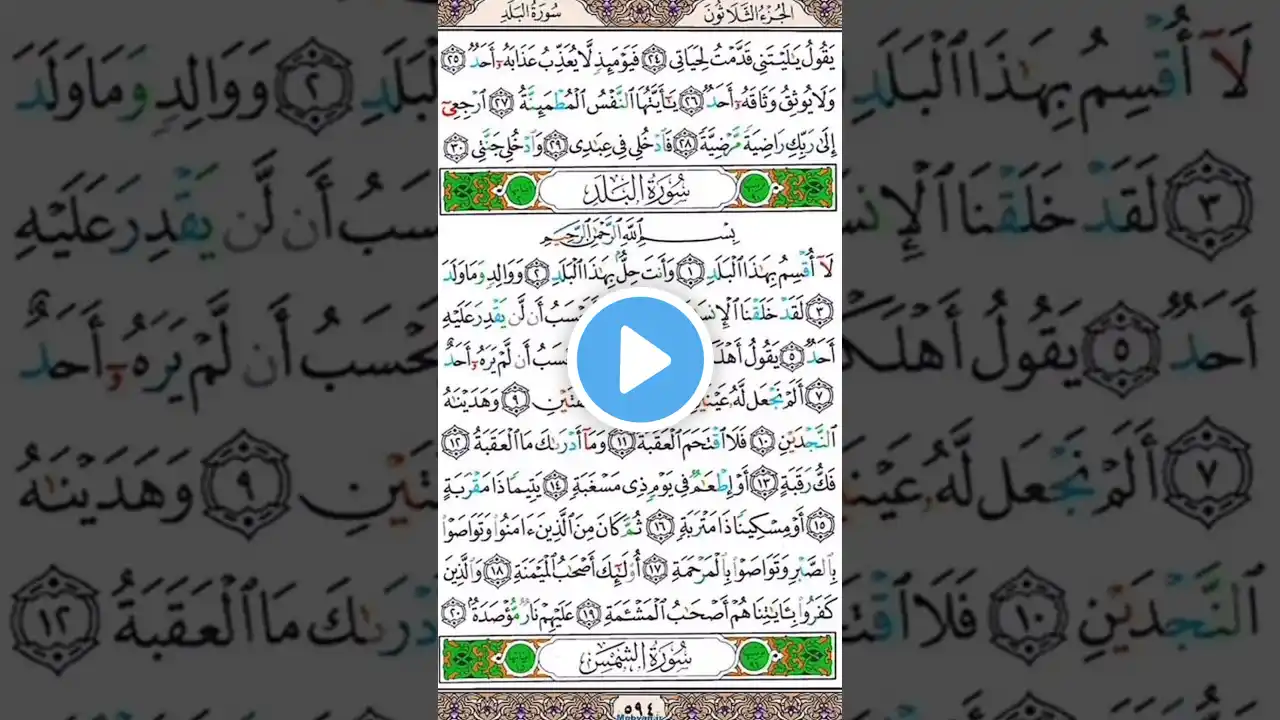 الجُزْءُ الثَّلَاثُونَ سُورَةُ البَلَدِ
يَقُولُ يَٰلَيْتَنِي قَدَّمْتُ لِحَيَاتِي ٢٤ فَيَوْمَئِذٍ لَّا يُعَذِّبُ عَذَابَهُۥٓ أَحَدٌ ٢٥
وَلَا يُوثِقُ وَثَاقَهُۥٓ أَحَدٌ ٢٦ يَٰٓأَيَّتُهَا ٱلنَّفْسُ ٱلْمُطْمَئِنَّةُ ٢٧ ٱرْجِعِىٓ
إِلَىٰ رَبِّكِ رَاضِيَةً مَّرْضِيَّةً ٢٨ فَٱدْخُلِى فِى عِبَٰدِى ٢٩ وَٱدْخُلِى جَنَّتِى ٣٠
سُورَةُ البَلَدِ
بِسْمِ ٱللَّهِ ٱلرَّحْمَٰنِ ٱلرَّحِيمِ
لَآ أُقْسِمُ بِهَٰذَا ٱلْبَلَدِ ١ وَأَنتَ حِلٌّۢ بِهَٰذَا ٱلْبَلَدِ ٢ وَوَالِدٍ وَمَا وَلَدَ
٣ لَقَدْ خَلَقْنَا ٱلْإِنسَ يَحْسَبُ أَن لَّن يَقْدِرَ عَلَيْهِ
أَحَدٌ ٥ يَقُولُ أَهْلَكْ يَحْسَبُ أَن لَّمْ يَرَهُۥٓ أَحَدٌ
٧ أَلَمْ نَجْعَل لَّهُۥ عَيْنَيْنِ وَشَفَتَيْنِ ٩ وَهَدَيْنَٰهُ
ٱلنَّجْدَيْنِ ١٠ فَلَا ٱقْتَحَمَ ٱلْعَقَبَةَ ١١ وَمَآ أَدْرَىٰكَ مَا ٱلْعَقَبَةُ ١٢
فَكُّ رَقَبَةٍ ١٣ أَوْ إِطْعَٰمٌ فِى يَوْمٍ ذِى مَسْغَبَةٍ ١٤ يَتِيمًا ذَا مَقْرَبَةٍ
١٥ أَوْ مِسْكِينًا ذَا مَتْرَبَةٍ ١٦ ثُمَّ كَانَ مِنَ ٱلَّذِينَ ءَامَنُوا۟ وَتَوَاصَوْا۟
بِٱلصَّبْرِ وَتَوَاصَوْا۟ بِٱلْمَرْحَمَةِ ١٧ أُو۟لَٰٓئِكَ أَصْحَٰبُ ٱلْمَيْمَنَةِ ١٨ وَٱلَّذِينَ
كَفَرُوا۟ بِـَٔايَٰتِنَا هُمْ أَصْحَٰبُ ٱلْمَشْـَٔمَةِ ١٩ عَلَيْهِمْ نَارٌ مُّؤْصَدَةٌۢ ٢٠
سُورَةُ الشَّمْسِ
٥٩٤